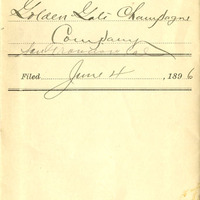 Golden Gate Champagne
Company
San Francisco Cal
Filed June 4, 1896